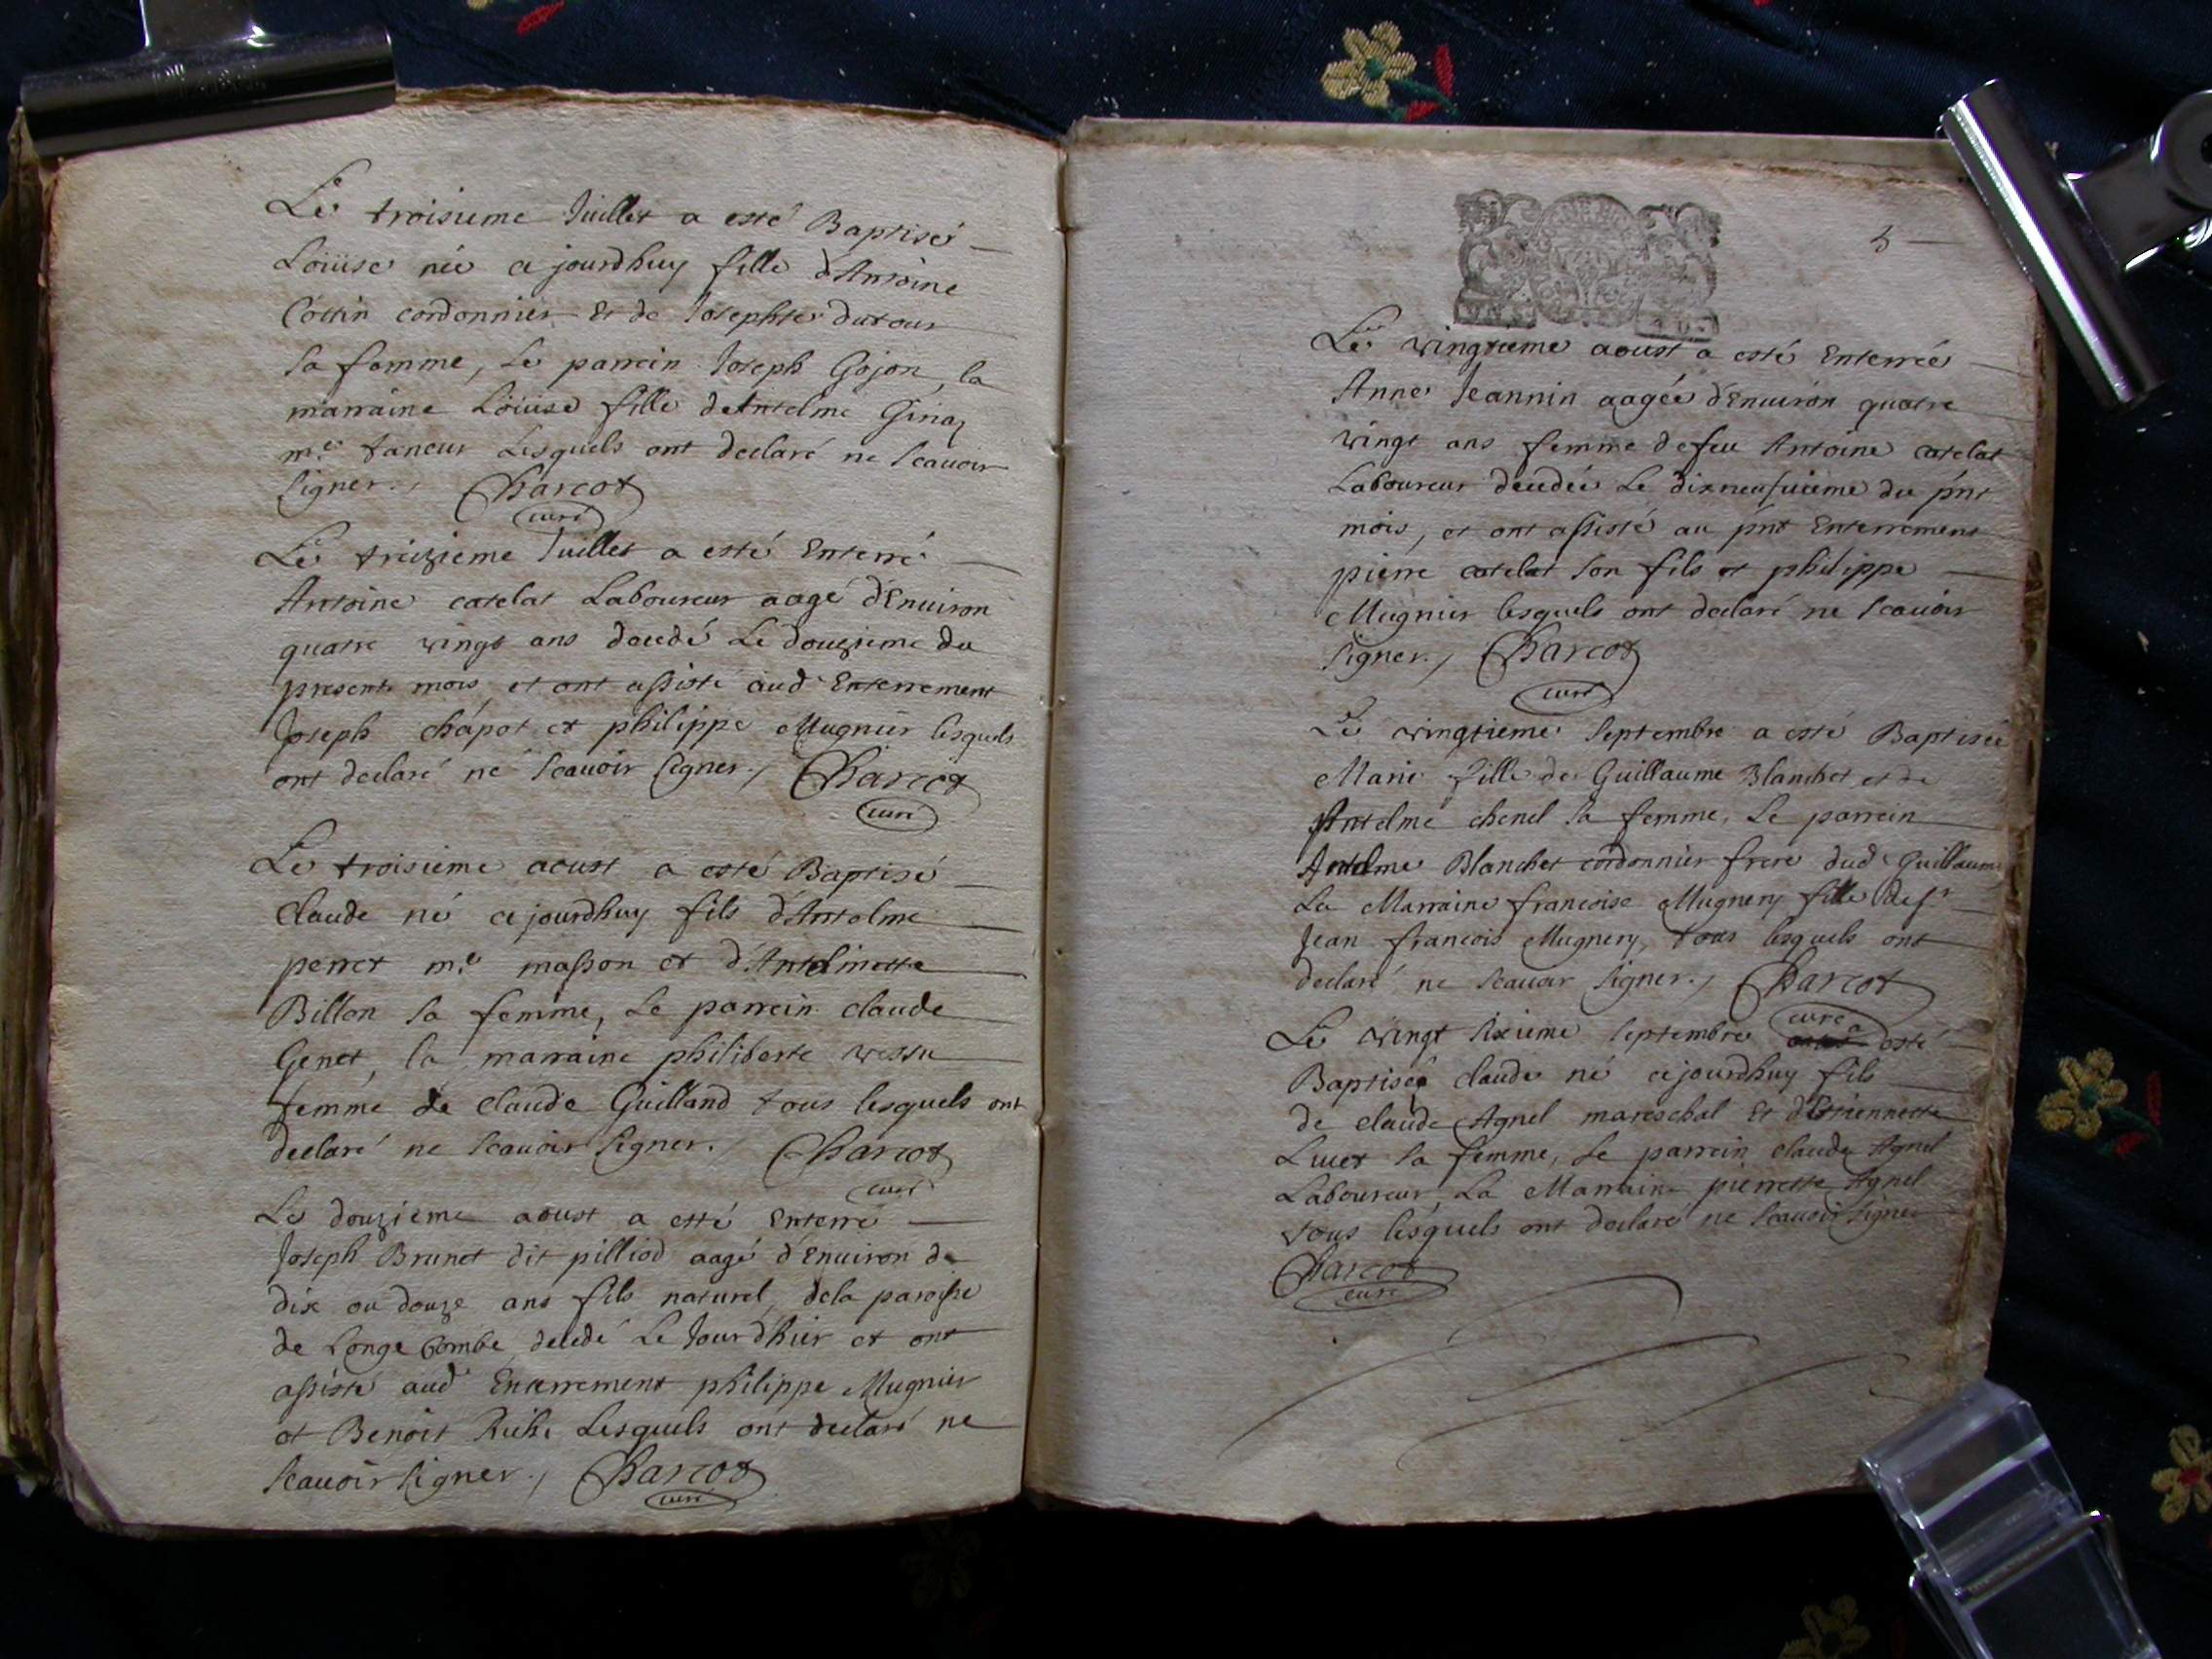 Le troisieme Juillet a esté Baptisé
Loüise née ce jourdhuy fille d'Antoine
Cottin cordonnier Et de Josephte dutour
sa femme, Le parrein Joseph Gojon, la
marraine Loüise fille de Antelme Ginaz
m.e taneur Lesquels ont declaré ne scauoir
signer./ Charcot
curé
Le treizieme Juillet a esté Enterré
Antoine catelat Laboureur aagé d'Enuiron
quatre vingt ans decedé Le douzieme du
present mois et ont assisté aud Enterrement
Joseph chapot et philippe Mugnier lesquels
ont declaré ne scauoir signer./ Charcot
curé
Le troisieme aoust a esté Baptisé
Claude né ce jourdhuy fils d'Antelme
perret m.e masson et d'Antelmette
Billon sa femme, Le parrein claude
Genet, la marraine philiberte
femme de claude Guilland tous lesquels ont
declaré ne scauoir signer./ Charcot
curé
Le douzieme aoust a esté Enterré
Joseph Brunet dit pilliod aagé d'Enuiron de
dix ou douze ans fils naturel, dela paroisse
de Longe Combe decedé Le Jour d'hier et ont
assisté aud Enterrement philippe Mugnier
et Benoit Lesquels ont declaré ne
scauoir signer./ Charcot
curé
5
Le vingtieme aoust a esté Enterrée
Anne Jeannin aagée d'Enuiron quatre
vingt ans femme defeu Antoine catelat
Laboureur decedée Le dixneufuieme du pnt
mois, et ont assisté au pnt Enterrement
pierre catelat son fils et philippe
Mugnier lesquels ont declaré ne scauoir
signer./ Charcot
curé
Le vingtieme septembre a esté Baptisée
Marie fille de Guillaume Blanchet et de
Antelme chenel sa femme, Le parrein
Antelme Blanchet cordonnier frere dud Guillaume
La Marraine francoise Mugnery fille de sr
Jean francois Mugnery, tous lesquels ont
declaré ne scauoir signer./ Charcot
curé
Le vingt sixieme septembre a esté
Baptisé claude né ce jourdhuy fils
de claude Agnel mareschal Et d'Estiennette
Liuet sa femme, Le parrein claude Agnel
Laboureur La Marraine pierrette Agnel
tous lesquels ont declaré ne scauoir signer
Charcot
curé